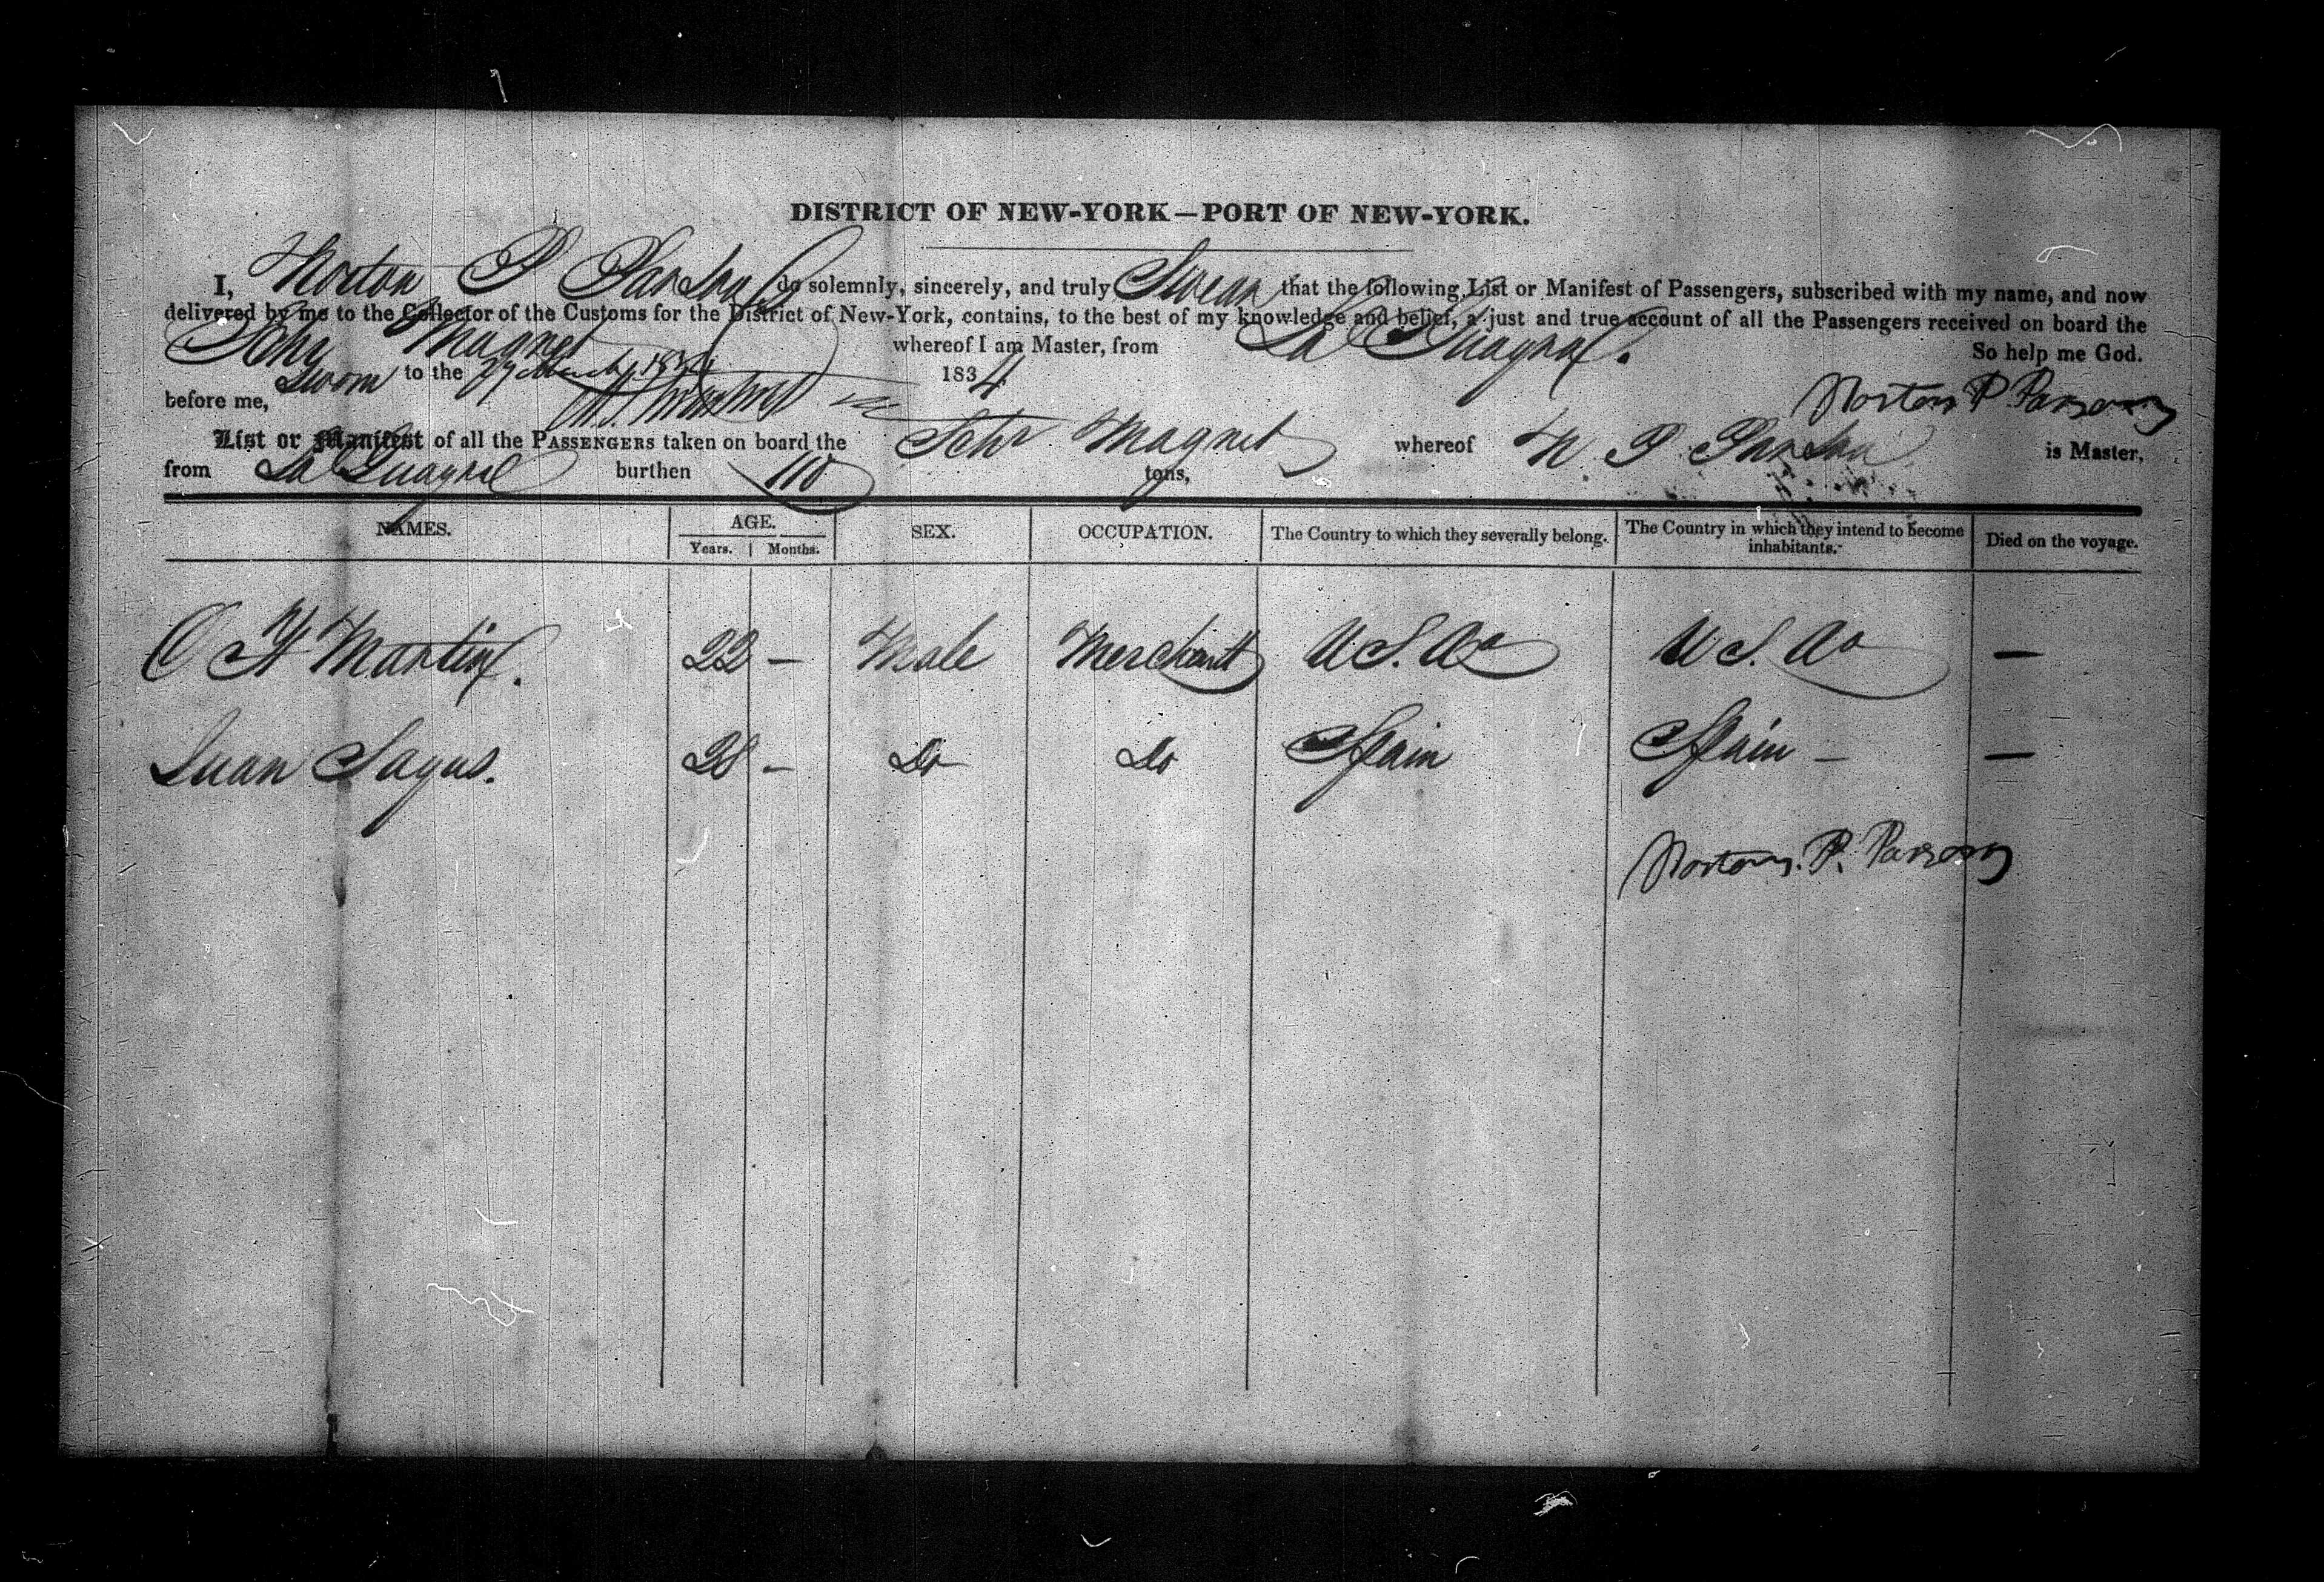 DISTRICT OF NEW-YORK—PORT OF NEW-YORK.
I, Norton P Parsons do solemnly, sincerely, and truly Swear that the following List or Manifest of Passengers, subscribed with my name, and now
delivered by me to the Collector of the Customs for the District of New-York, contains, to the best of my knowledge and belief, a just and true account of all the Passengers received on board the
Schr Magnet whereof I am Master, from La Guayra. So help me God.
Sworn to the 29 March 1834 1834
before me, Norton P Parsons
List or Manifest of all the PASSENGERS taken on board the Schr Magnet whereof N. P. Parsons is Master,
from La Guayra burthen 110 tons,
NAMES. AGE. SEX. OCCUPATION. The Country to which they severally belong. The Country in which they intend to become inhabitants. Died on the voyage.
Years. Months.
O H Martin. 22 — Male Merchant U.S. Aa U S. Aa —
Juan Sagus. 28 — Do Do Spain Spain — —
Norton. P. Parsons